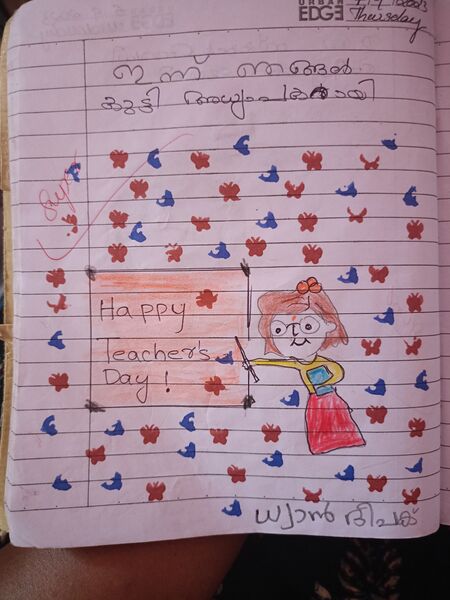 URBAN
EDGE
Thursday
ഇന്ന് ഞങ്ങൾ
കുട്ടി അധ്യാപകരായി
Happy
Teacher's
Day!
ധ്യാൻ ദീപക്